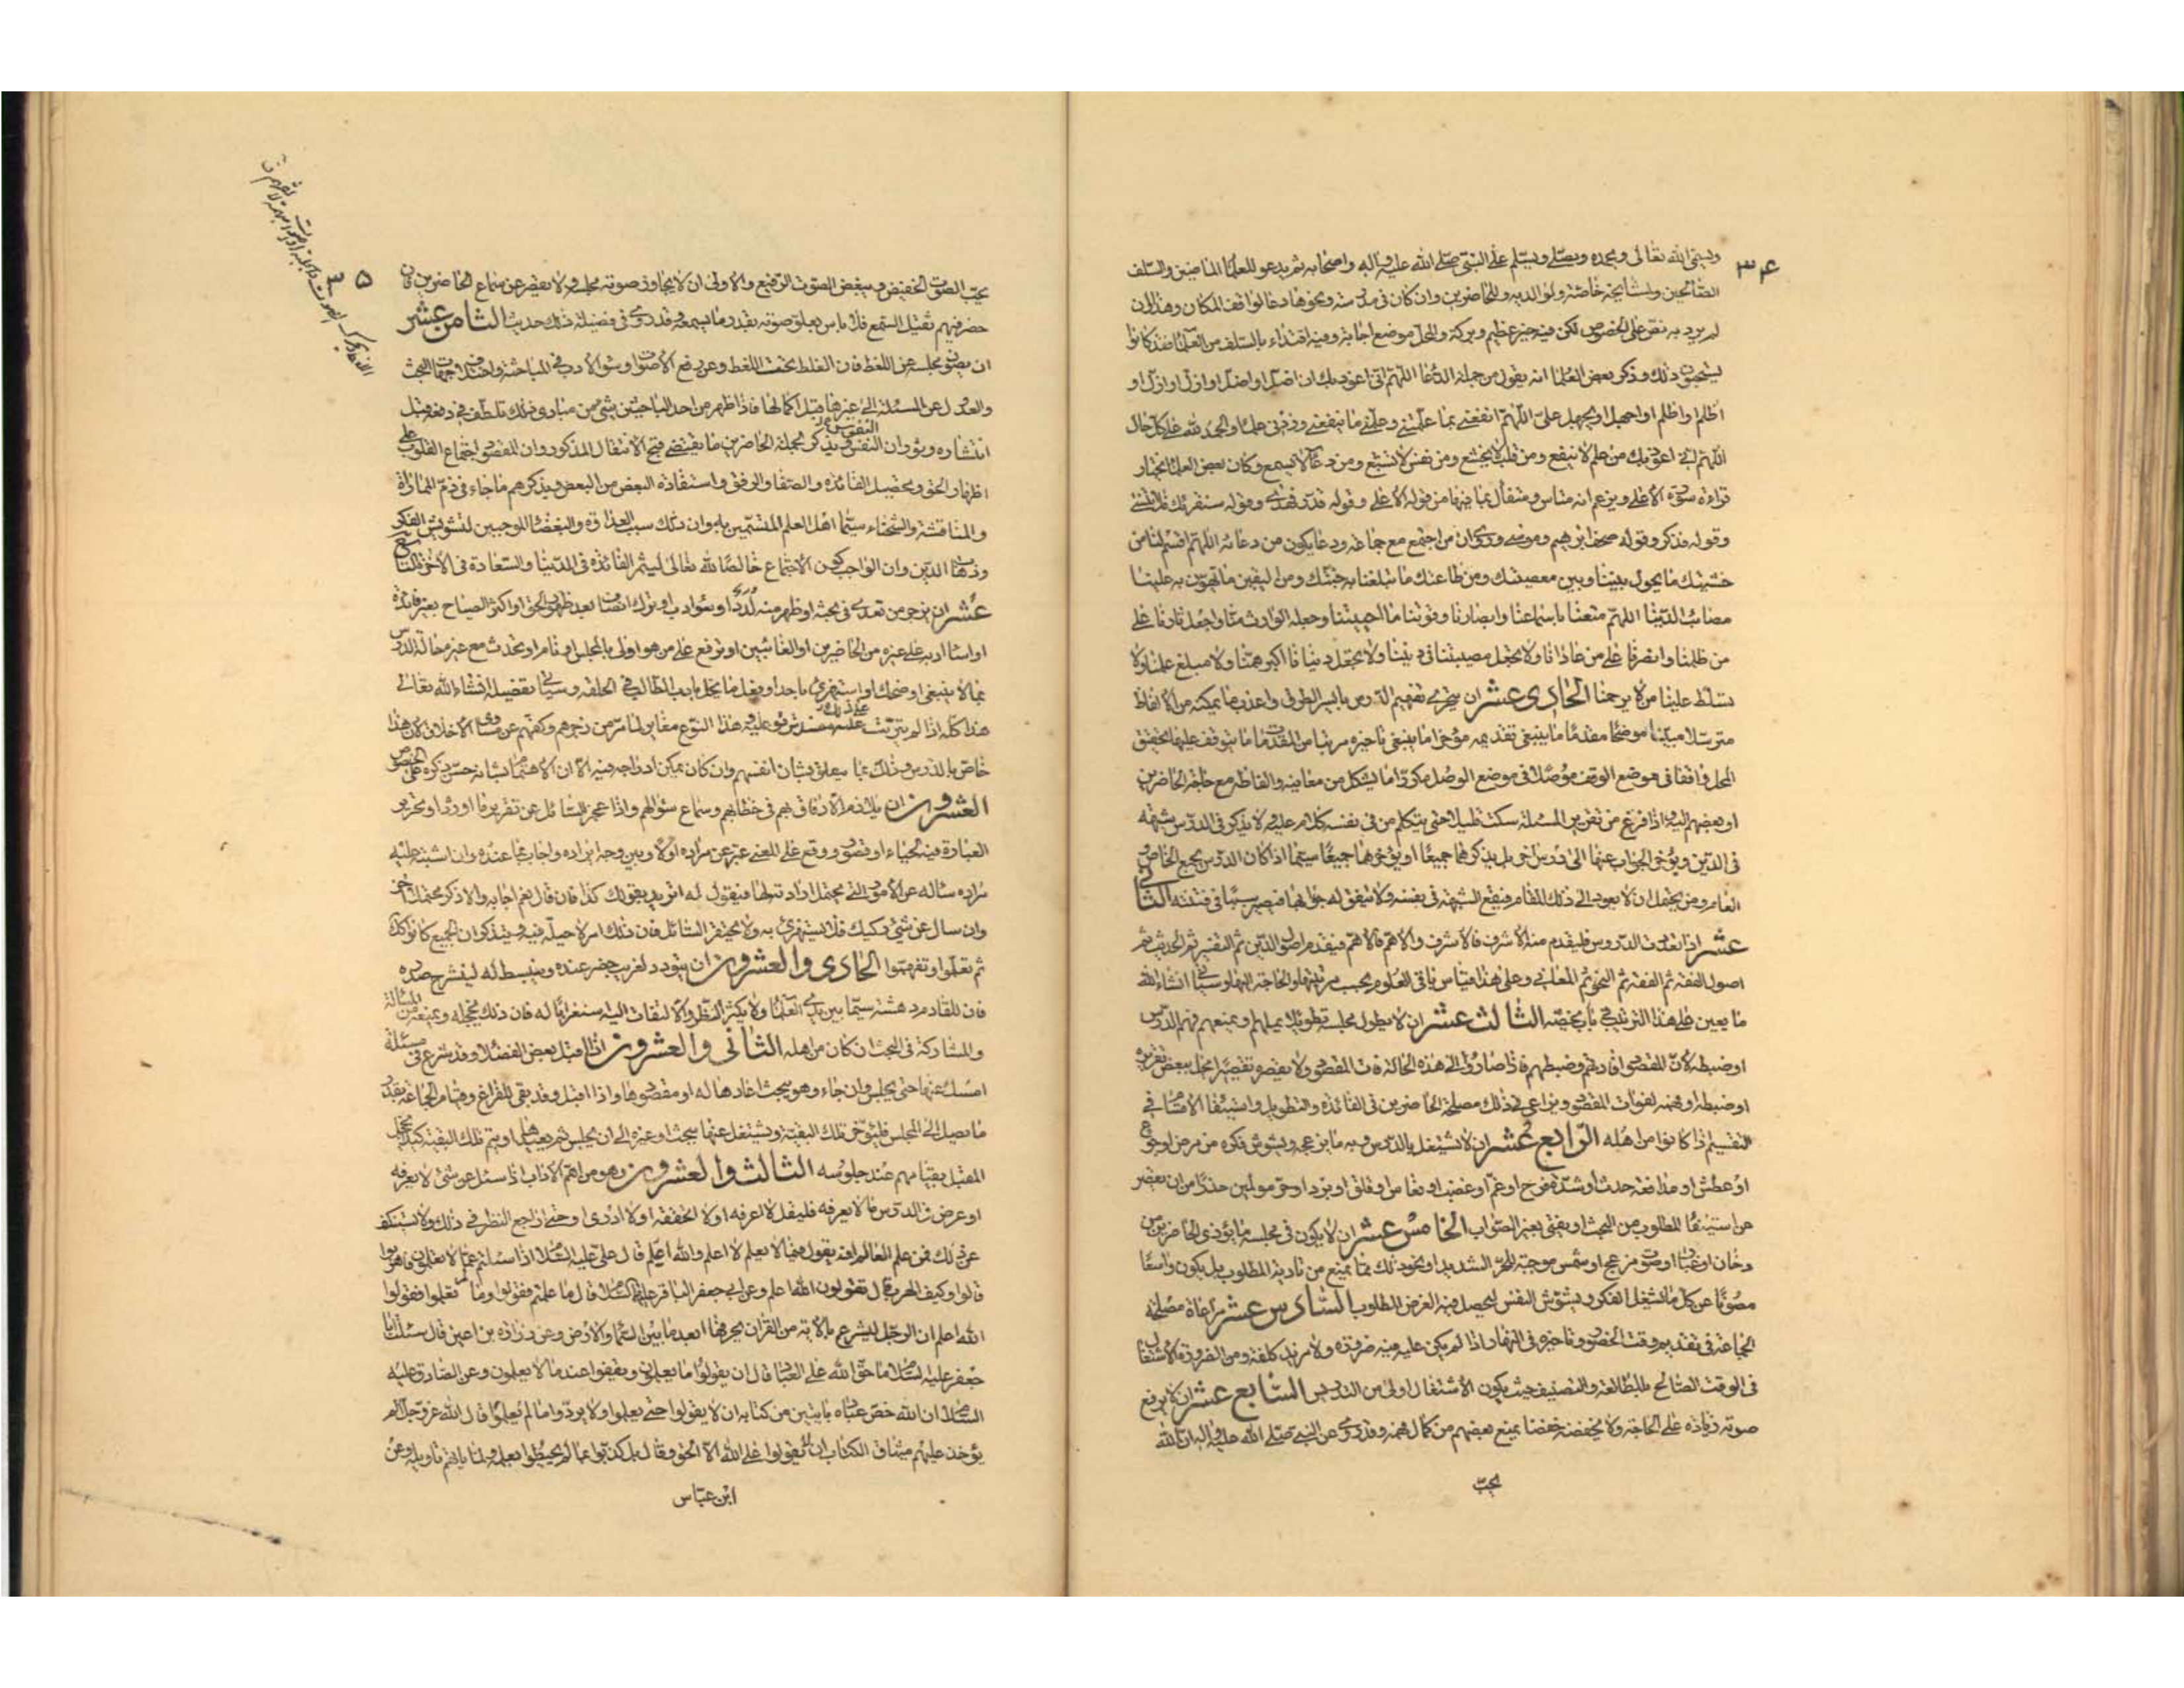 ۳۴
ويسمّي الله تعالى ويحمده ويصلّي ويسلّم على النبيّ صلّى الله عليه وآله واصحابه ثم يدعو للعلماء الماضين والسلف
الصّالحين ولمشايخه خاصّته ولوالديه وللحاضرين وان كان في مدرسة ونحوها دعا لواقف المكان وهذا وان
لم يرد به نصّ على الخصوص لكن فيه خير عظيم وبركة والمحلّ موضع اجابة وفيه اقتداء بالسلف من العلماء فقد كانوا
يستحبّون ذلك وذكر بعض العلماء انه يقول من جملة الدّعاء اللّهمّ انّي اعوذ بك ان اضلّ او اضلّ او ازلّ او ازلّ او
اظلم او اظلم او اجهل او يجهل عليّ اللّهمّ انفعني بما علّمتني وعلّمني ما ينفعني وزدني علما والحمد لله على كلّ حال
اللّهمّ انّي اعوذ بك من علم لا ينفع ومن قلب لا يخشع ومن نفس لا تشبع ومن دعاء لا يسمع وكان بعض العلماء يختار
قراءة سورة الاعلى ويزعم انه مناسب ومتفأل بما فيها من قوله الاعلى وقوله قدّر فهدى وقوله سنقرئك فلا تنسى
وقوله فذكّر وقوله صحف ابراهيم وموسى وروي ان من اجتمع مع جماعة ودعا يكون من دعائه اللّهمّ اقسم لنا من
خشيتك ما يحول بيننا وبين معصيتك ومن طاعتك ما تبلّغنا به جنّتك ومن اليقين ما تهوّن به علينا
مصائب الدّنيا اللّهمّ متّعنا باسماعنا وابصارنا وقوّتنا ما احييتنا وجعله الوارث منّا واجعل ثارنا على
من ظلمنا وانصرنا على من عادانا ولا تجعل مصيبتنا في ديننا ولا تجعل دنيانا اكبر همّنا ولا مبلغ علمنا ولا
تسلّط علينا من لا يرحمنا الحادي عشر ان يتحرّى تفهيم الدّرس بايسر الطرق واعذب ما يمكنه من الالفاظ
مترسّلا مبيّنا موضحا مقدّما ما ينبغي تقديمه مؤخّرا ما ينبغي تاخيره مرتّبا من المقدّمات ما يتوقّف عليها تحقيق
المحلّ واقفا في موضع الوقف موصلا في موضع الوصل مكرّرا ما يشكل من معانيه والفاظه مع حاجة الحاضرين
او بعضهم اليه واذا فرغ من تقرير المسئلة سكت قليلا حتى يتكلّم من في نفسه كلام عليه ولا يذكر في الدّرس شبهة
في الدّين ويؤخّر الجواب عنها الى درس آخر بل يذكرهما جميعًا او يؤخّرهما جميعًا سيّما اذا كان الدرس يجمع الخاصّ و
العام ومن يحتمل ان لا يعود الى ذلك المقام فتقع الشبهة في نفسه ولا يتّفق له جوابها فيصير سببًا في فتنته الثاني
عشر اذا تعدّدت الدّروس فليقدّم منها الاشرف فالاشرف والاهمّ فالاهمّ فيقدّم اصول الدّين ثم التفسير ثم الحديث ثم
اصول الفقه ثم الفقه ثم النحو ثم المعاني وعلى هذا قياس باقي العلوم بحسب مرتبتها والحاجة اليها وسيأتي انشاء الله
ما يعين على هذا الترتيب في باب يخصّه الثالث عشر ان لا يطول مجلسه تطويلا يملّهم او يمنعهم فهم الدرس
او ضبطه لانّ المقصود افادتهم وضبطهم فاذا صاروا الى هذه الحالة فات المقصود ولا يقصره تقصيرا يخلّ ببعض تقريره
او ضبطه او فهمه لفوات المقصود ويراعي في ذلك مصلحة الحاضرين في الفائدة والتطويل واستيفاء الاقسام في
التقسيم اذا كانوا من اهله الرّابع عشر ان لا يشتغل بالدّرس وبه ما يزعجه ويشوّش فكره من مرض او جوع
او عطش او مدافعة حدث او شدّة فرح او غمّ او غضب او نعاس او قلق او برد او حرّ مولمين حذرًا من ان يقصر
عن استيفاء المطلوب من البحث او يفتي بغير الصّواب الخامس عشر ان لا يكون في مجلسه ما يؤذي الحاضرين من
دخان او غبار او صوت مزعج او شمس موجبة للحرّ الشديد او نحو ذلك ممّا يمنع من تادية المطلوب بل يكون واسعًا
مصونًا عن كلّ ما يشغل الفكر ويشوّش النفس ليحصل فيه الغرض المطلوب السّادس عشر مراعاة مصلحة
الجماعة في تقديم وقت الحضور وتاخيره في النّهار اذا لم يكن عليه فيه ضرورة ولا مزيد كلفة ومن الضرورة الاشتغال
في الوقت الصّالح بالمطالعة والتصنيف حيث يكون الاشتغال اولى من التدريس السّابع عشر ان لا يرفع
صوته زيادة على الحاجة ولا يخفضه خفضا يمنع بعضهم من كمال فهمه وقد روي عن النبي صلّى الله عليه واله ان الله
يحبّ
۳۵
يحبّ الصّوت الخفيض ويبغض الصّوت الرّفيع والاولى ان لا يجاوز صوته مجلسه ولا يقصر عن سماع الحاضرين فان
حضر فيهم ثقيل السّمع فلا باس بعلوّ صوته بقدر ما يسمعه وقد روي في فضيلة ذلك حديث الثامن عشر
ان يصون مجلسه عن اللغط فان الغلط تحت اللغط وعن رفع الاصوات وسوء الادب في المباحثة واختلاف جهات البحث
والعدول عن المسئلة الى غيرها قبل اكمالها فاذا ظهر من احد الباحثين شيء من مبادي ذلك تلطّف في دفعه قبل
انتشاره وثوران النفوس ويذكر لجملة الحاضرين ما يقتضي قبح الانتقال المذكور وان المقصود اجتماع القلوب على
اظهار الحق وتحصيل الفائدة والصّفاء والرفق واستفادة البعض من البعض ويذكرهم ما جاء في ذمّ المماراة
والمنافسة والشحناء سيّما اهل العلم المتّسمين به وان ذلك سبب العداوة والبغضاء الموجبين لتشويش الفكر
وذهاب الدّين وان الواجب كون الاجتماع خالصًا لله تعالى ليثمر الفائدة في الدّنيا والسّعادة في الاخرة التاسع
عشر ان يزجر من تعدّى في بحثه او ظهر منه لدد او سوء ادب او ترك انصاف بعد ظهور الحق او اكثر الصياح بغير فائدة
او اساء ادبه على غيره من الحاضرين او الغائبين او ترفّع على من هو اولى منه بالمجلس او نام او تحدّث مع غيره حالة الدرس
بما لا ينبغي او ضحك او استهزئ باحد او فعل ما يخلّ بادب الطالب في الحلقة وسيأتي تفصيله انشاء الله تعالى
هذا كلّه اذا لم يترتّب على ذلك مفسدة تربو عليه وهذا النّوع مغاير لما مرّ من زجرهم وكفّهم عن مساوي الاخلاق لانّ هذا
خاصّ بالدّرس وذلك بما يتعلق بشان انفسهم وان كان يمكن ادراجه فيه الا ان الاهتمام بشانه حسن ذكره على الخصوص
العشرون ان يلازم الارفاق بهم في خطابهم وسماع سؤالهم واذا عجز السّائل عن تقرير ما اورده او تحرير
العبارة فيه لحياء او قصور ووقع على المعنى عبّر عن مراده اولا وبين وجه ايراده واجاب بما عنده وان اشتبه عليه
مراده ساله عن الامور التي يحتمل ارادته لها فيقول له اتريد بقولك كذا فان قال نعم اجابه والا ذكر محتملا آخر
وان سال عن شيء ركيك فلا يستهزئ به ولا يحتقر السّائل فان ذلك امر لا حيلة فيه ويتذكر ان الجميع كانوا كذلك
ثم تعلّموا وتفهّموا الحادي والعشرون ان يتودّد لغريب حضر عنده وينبسط له لينشرح صدره
فان للقادم دهشة سيّما بين يدي العلماء ولا يكثر النظر والالتفات اليه استغرابًا له فان ذلك يخجله ويمنعه من المسألة
والمشاركة في البحث ان كان من اهله الثاني والعشرون اذا اقبل بعض الفضلاء وقد شرع في مسئلة
امسك عنها حتى يجلس وان جاء وهو يبحث اعادها له او مقصودها واذا اقبل وقد بقي للفراغ وقيام الجماعة بقدر
ما يصل الى المجلس فليؤخّر تلك البقيّة ويشتغل عنها ببحث او غيره الى ان يجلس ثم يعيدها او يتمّ تلك البقيّة كيلا يخجل
المقبل بقيامهم عند جلوسه الثالث والعشرون وهو من اهم الاداب اذا سئل عن شيء لا يعرفه
او عرض في الدّرس ما لا يعرفه فليقل لا اعرفه او لا اتحققه او لا ادري او حتى اراجع النظر في ذلك ولا يستنكف
عن ذلك فمن علم العالم ان يقول فيما لا يعلم لا اعلم والله اعلم قال علي عليه السّلام اذا سئلتم عمّا لا تعلمون فاهربوا
قالوا وكيف الهرب قال تقولون الله اعلم وعن ابي جعفر الباقر عليه السّلام قال ما علمتم فقولوا وما لم تعلموا فقولوا
الله اعلم ان الرجل ليشرع بالاية من القرآن يخرّ فيها ابعد ما بين السّماء والارض وعن زرارة بن اعين قال سئلت ابا
جعفر عليه السّلام ما حقّ الله على العباد قال ان يقولوا ما يعلمون ويقفوا عند ما لا يعلمون وعن الصّادق عليه
السّلام ان الله خصّ عباده بايتين من كتابه ان لا يقولوا حتى يعلموا ولا يردّوا ما لم يعلموا قال الله عزّ وجلّ الم
يؤخذ عليهم ميثاق الكتاب ان لا يقولوا على الله الا الحق وقال بل كذّبوا بما لم يحيطوا بعلمه ولمّا ياتهم تاويله وعن
ابن عبّاس